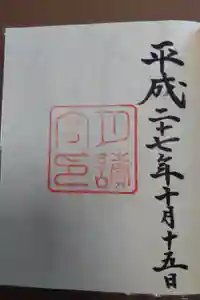 平成二十七年十月十五日